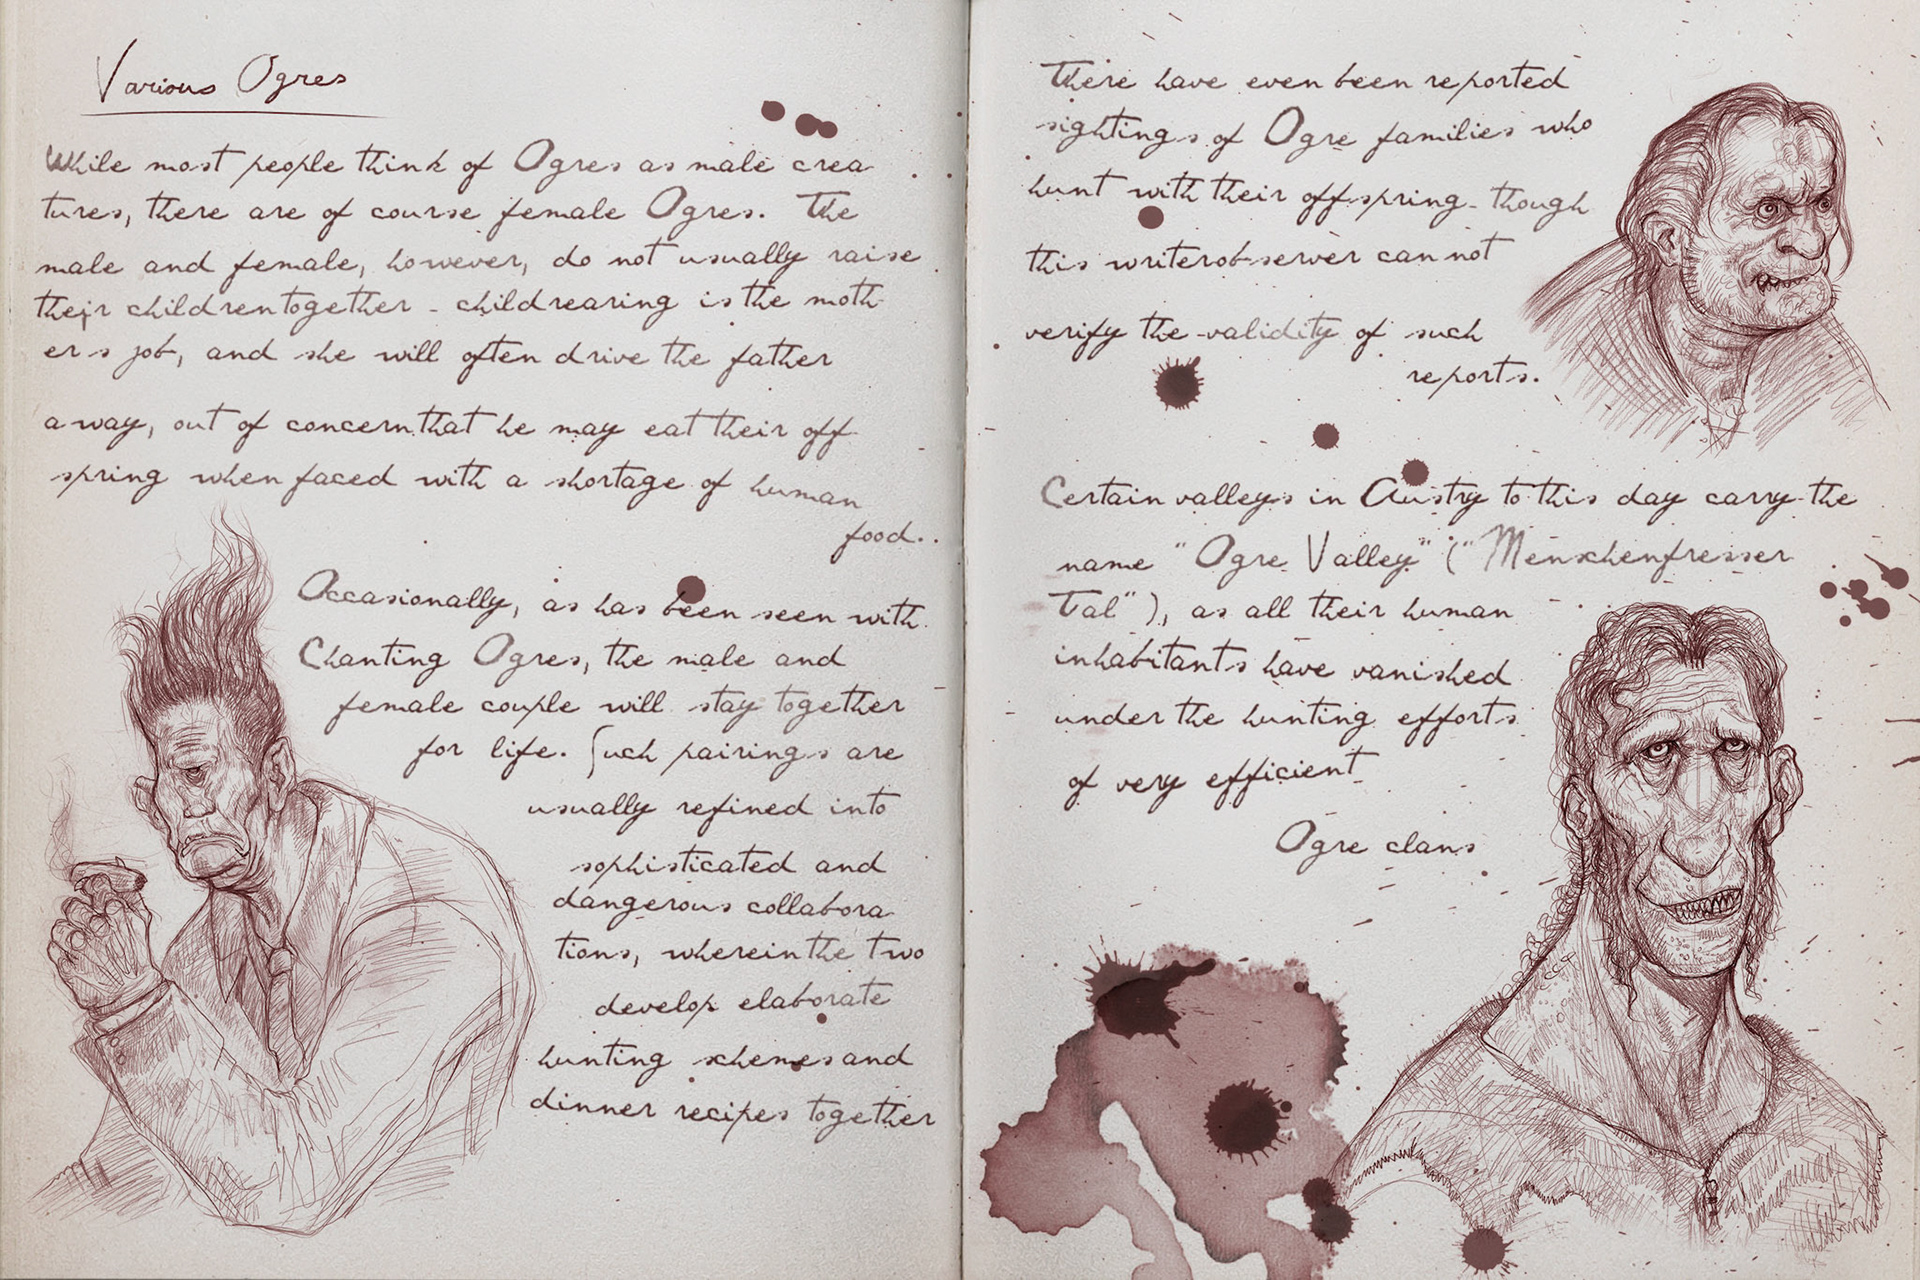 Various Ogres
While most people think of Ogres as male crea-
tures, there are of course female Ogres. The
male and female, however, do not usually raise
their children together - child rearing is the moth-
ers job, and she will often drive the father
away, out of concern that he may eat their off-
spring when faced with a shortage of human
food..
Occasionally, as has been seen with
Chanting Ogres, the male and
female couple will stay together
for life. Such pairings are
usually refined into
sophisticated and
dangerous collabora-
tions, wherein the two
develop elaborate
hunting schemes and
dinner recipes together
There have even been reported
sightings of Ogre families who
hunt with their offspring - though
this writerobserver can not
verify the validity of such
reports.
Certain valleys in Austry to this day carry the
name "Ogre Valley" ("Menschenfresser
Tal"), as all their human
inhabitants have vanished
under the hunting efforts
of very efficient
Ogre clans